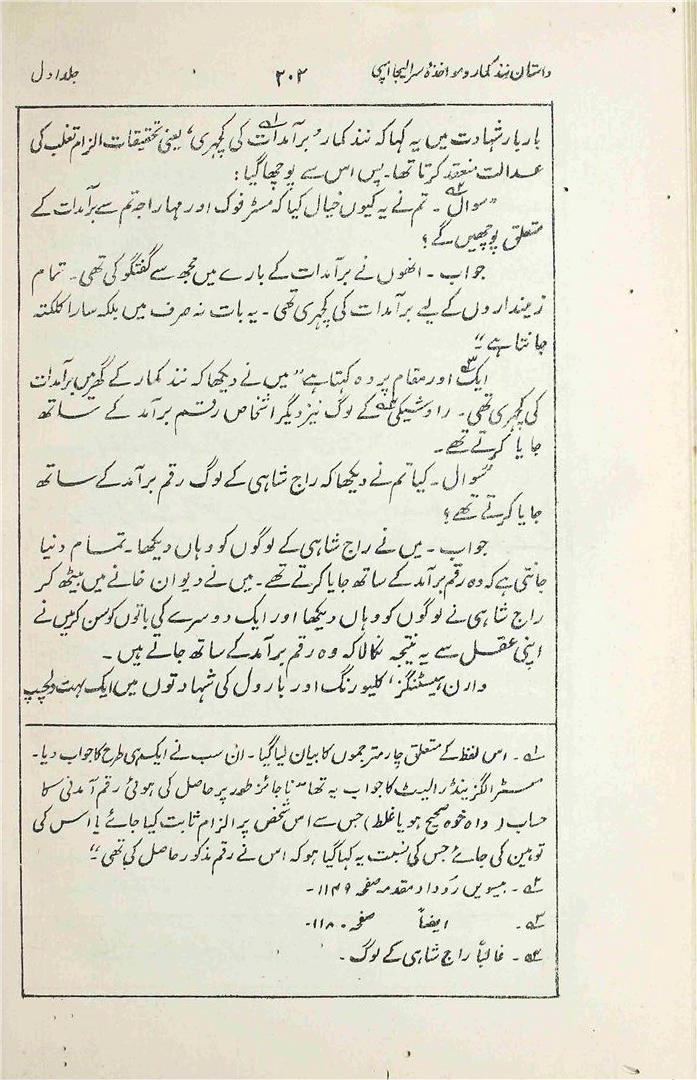 داستان نند کمار و مواخذۂ سر الیجا امپی ۲۰۲ جلد اول
بار بار شہادت میں یہ کہا کہ نند کمار ’برآمدات۱؎ کی کچہری‘ یعنی تحقیقات الزام تغلب کی
عدالت منعقد کرتا تھا۔ پس اس سے پوچھا گیا:
”سوال۲؎۔ تم نے یہ کیوں خیال کیا کہ مسٹر فوک اور مہاراجہ تم سے برآمدات کے
متعلق پوچھیں گے؟
جواب۔ انھوں نے برآمدات کے بارے میں مجھ سے گفتگو کی تھی۔ تمام
زینداروں کے لیے برآمدات کی کچہری تھی۔ یہ بات نہ صرف میں بلکہ سارا کلکتہ
جانتا ہے“
ایک۳؎ اور مقام پر وہ کہتا ہے ”میں نے دیکھا کہ نند کمار کے گھر میں برآمدات
کی کچہری تھی۔ راوشیکی۴؎ کے لوگ نیز دیگر اشخاص رقم برآمد کے ساتھ
جایا کرتے تھے۔
”سوال۔ کیا تم نے دیکھا کہ راج شاہی کے لوگ رقم برآمد کے ساتھ
جایا کرتے تھے؟
جواب۔ میں نے راج شاہی کے لوگوں کو وہاں دیکھا۔ تمام دنیا
جانتی ہے کہ وہ رقم برآمد کے ساتھ جایا کرتے تھے۔ میں نے دیوان خانے میں بیٹھ کر
راج شاہی نے لوگوں کو وہاں دیکھا اور ایک دوسرے کی باتوں کو سن کر میں نے
اپنی عقل سے یہ نتیجہ نکالا کہ وہ رقم برآمد کے ساتھ جاتے ہیں۔
وارن ہیسٹنگز، کلیورنگ اور بارول کی شہادتوں میں ایک بہت دلچسپ
۱؎۔ اس لفظ کے متعلق چار مترجموں کا بیان لیا گیا۔ ان سب نے ایک ہی طرح کا جواب دیا۔
مسٹر الگزینڈر الیٹ کا جواب یہ تھا ”ناجائز طور پر حاصل کی ہوئی رقم آمدنی کا
حساب (واہ خوہ صحیح ہو یا غلط) جس سے اس شخص پر الزام ثابت کیا جائے یا اس کی
توہین کی جائے جس کی نسبت یہ کہا گیا ہو کہ اس نے رقم مذکور حاصل کی تھی“
۲؎۔ بیسویں روداد مقدمہ صفحہ ۱۱۴۹۔
۳؎۔ ایضاً صفحہ ۱۱۸۰۔
۴؎۔ غالباً راج شاہی کے لوگ۔